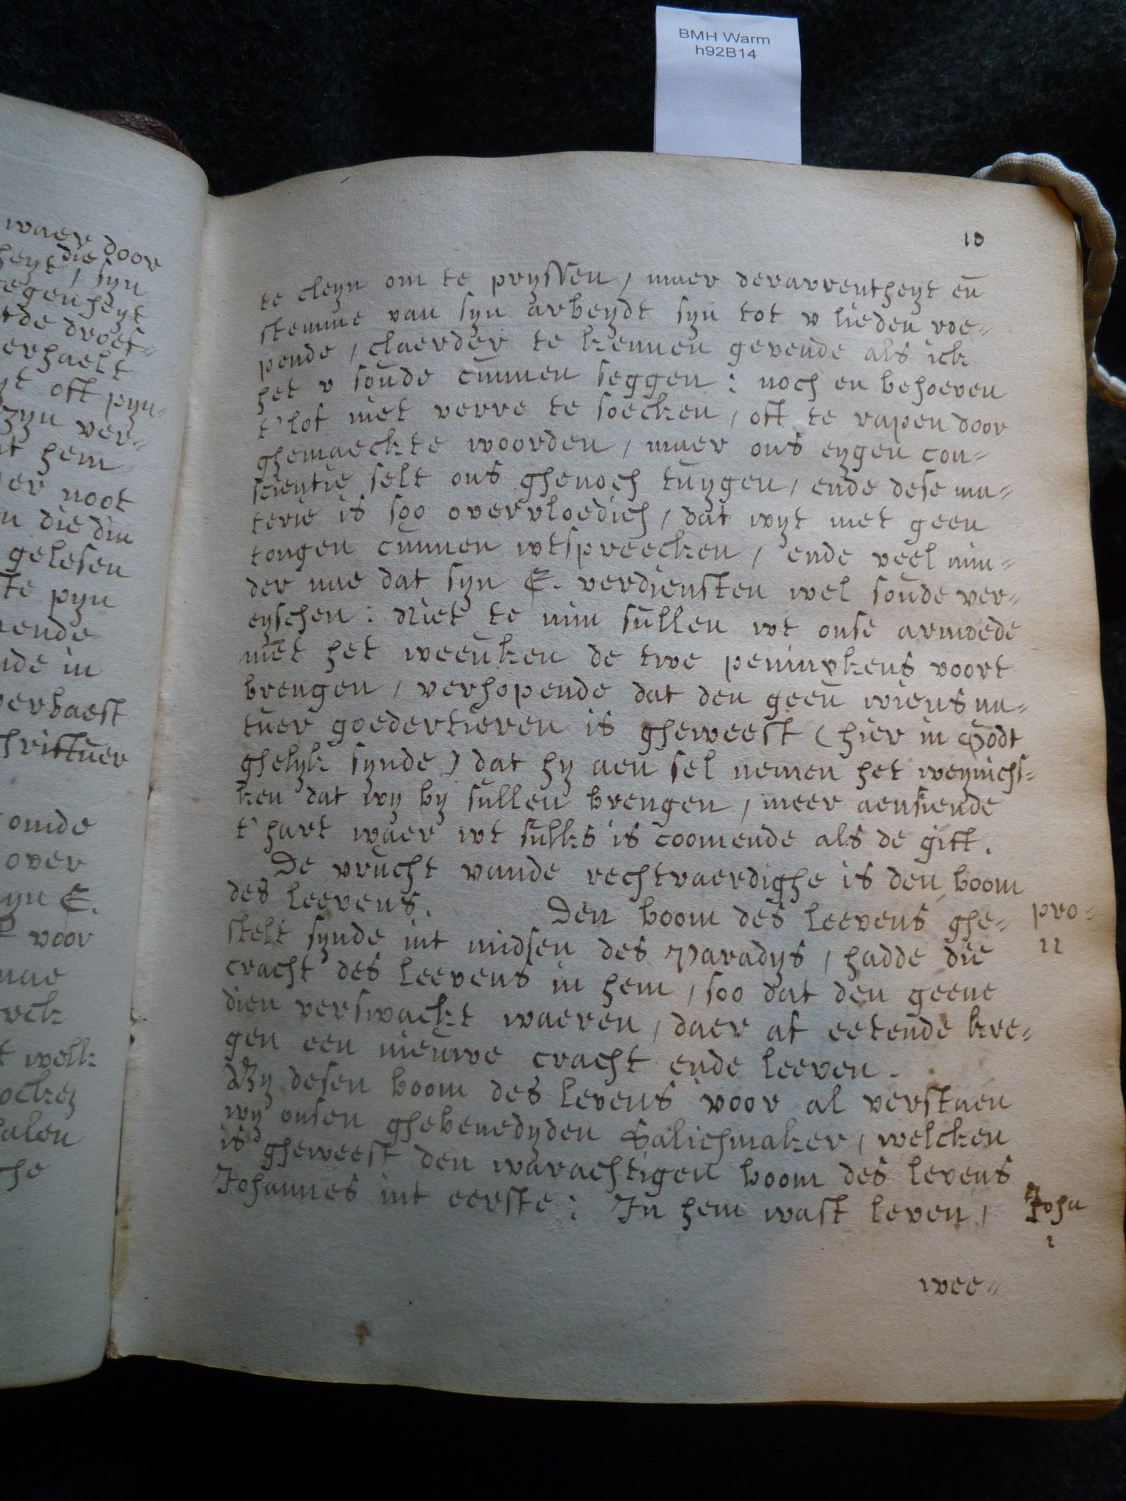 BMH Warm
h92B14
waer door
die
heyt, syn
egenheyt
tde droef-
erhaelt
yt oft pyn-
zyn ver-
t hem
er noot
n die din
gelesen
te pyn
ende
nde in
verbaest
hrifftuer
omde
over
yn E.
voor
nae
rck
t welk
alen
che
10
te cleyn om te pryssen, maer de ervarentheyt en
stemme van syn arbeydt syn tot v lieden roe-
pende, claerder te kennen gevende als ick
het v soude cunnen seggen: noch en behoeven
t'lof niet verre te soecken, oft te rapen door
ghemaeckte woorden, maer ons eygen con-
scientie selt ons ghenoch tuygen, ende dese ma-
terie is soo overvloedich, dat wyt met geen
tongen cunnen wtspreecken, ende veel min-
der nae dat syn E. verdiensten wel soude ver-
eyschen: Niet te min sullen wt onse armoede
met het weeuken de twe peninxkens voort
brengen, verhopende dat den geen wiens na-
tuer goedertieren is gheweest (hier in Godt
ghelyk synde) dat hy aen sel nemen het weynichs-
ken dat wy by sullen brengen, meer aensiende
t'hart waer wt sulks is coomende als de gift.
De vrucht vande rechtvaerdighe is den boom
des leevens. Den boom des leevens ghe-
pro-
11
stelt synde int midsen des Paradys, hadde die
cracht des leevens in hem, soo dat den geene
dien verswackt waeren, daer af eetende kre-
gen een nieuwe cracht ende leeven.
By desen boom des levens voor al verstaen
wy onsen ghebenedyden Salichmaker, welcken
is gheweest den warachtigen boom des levens
Johannes int eerste: In hem wast leven,
Joha
1
wee-